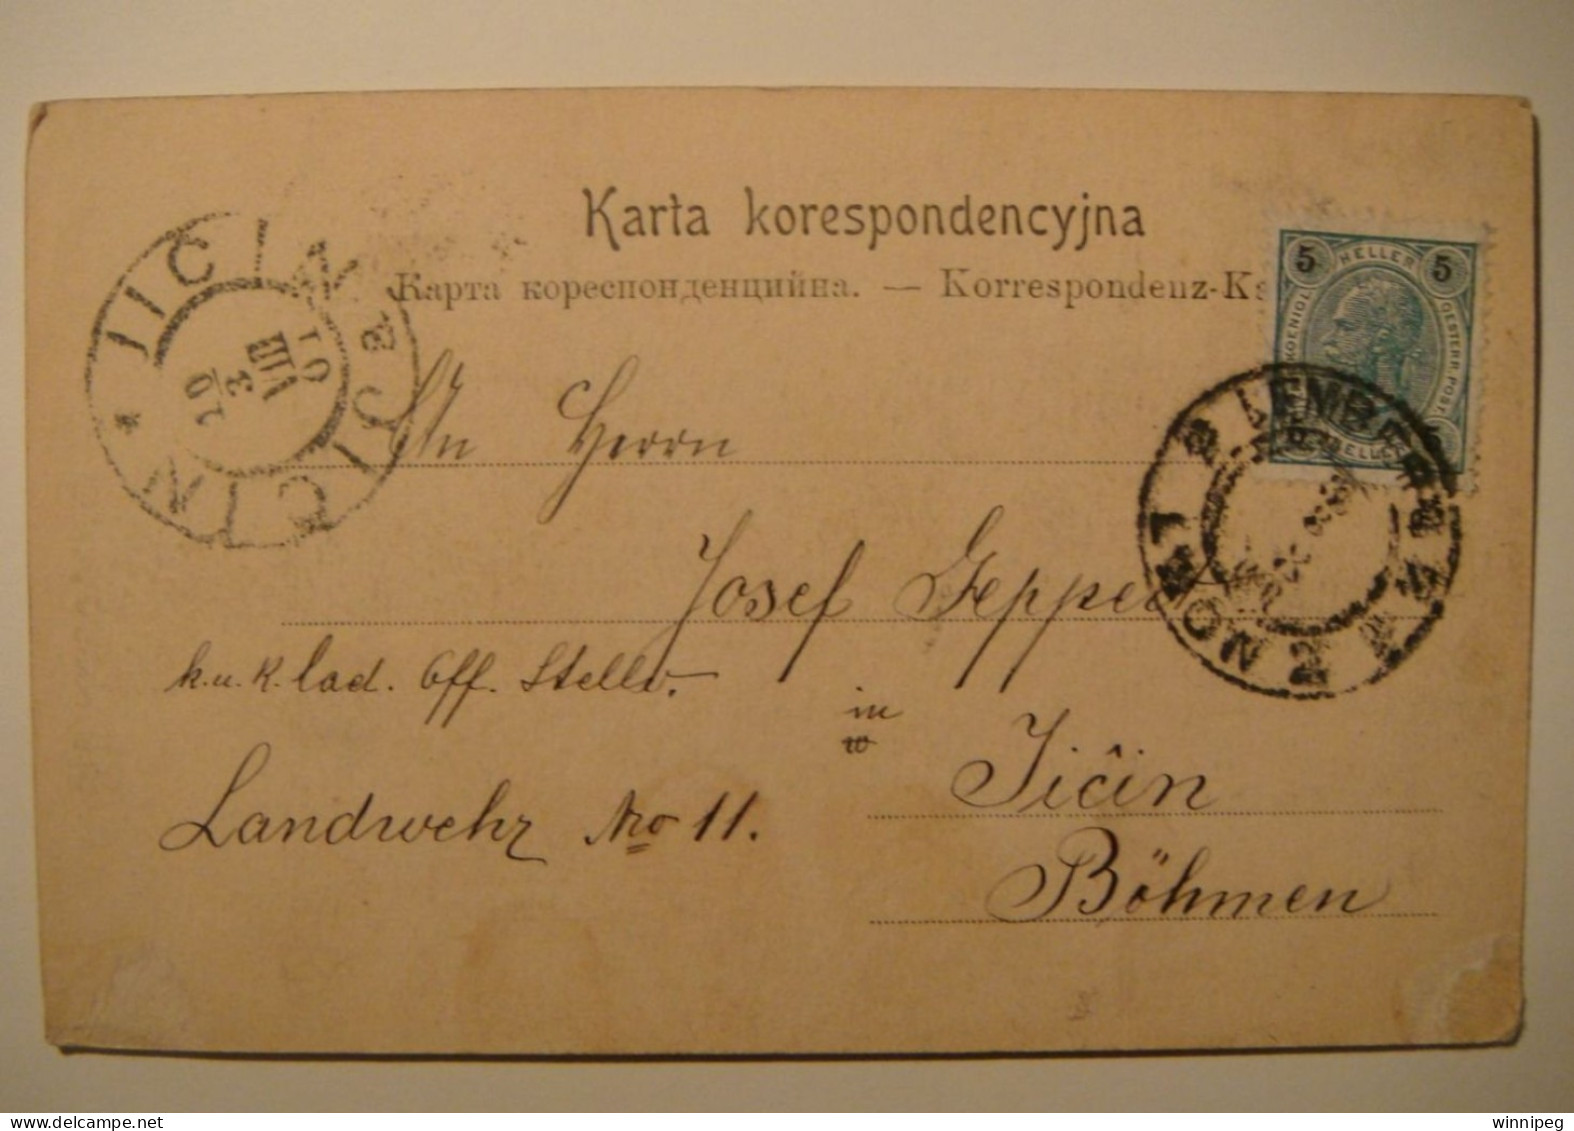 Karta korespondencyjna
Карта кореспонденцийна. — Korrespondenz-K
5 HELLER 5
KOENIGL
OESTERR. POST.
JICIN
10
3
VIII
01
JIČÍN
LEMBERG 2
LWÓW 2
An Herrn
Josef Geppert
k. u. k. Cad. Off. Stellv.
in
Jičin
Landwehr No 11.
Böhmen
www.delcampe.net
winnipeg